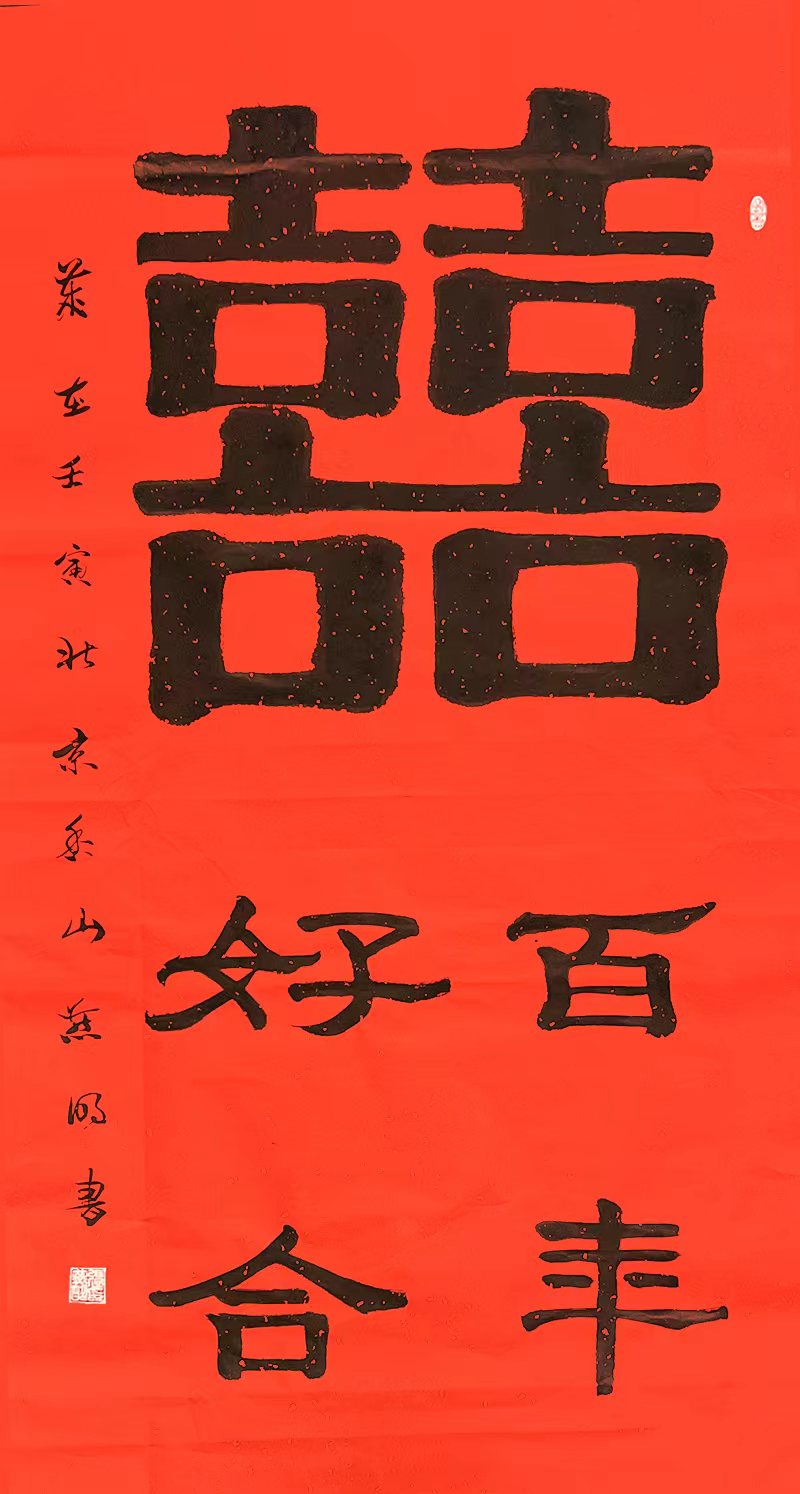 囍
百年
好合
歲在壬寅北京香山燕明書